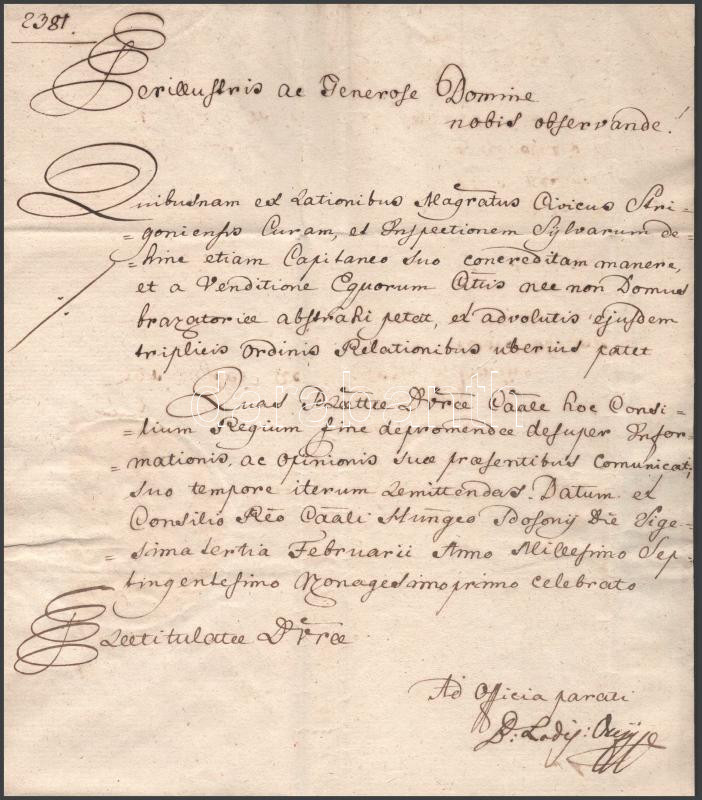 2381.
Perillustris ac Generose Domine
nobis observande!
Quibusnam ex Rationibus Magratus Civicus Stri=
=goniensis Curam, et Inspectionem Sylvarum de=
=hinc etiam Capitaneo suo concreditam manere,
et a Venditione Equorum Cattis nec non Domus
braxatoriæ abstrahi petat, ex advolutis ejusdem
triplicis Ordinis Relationibus uberius patet
Quas Prættæ Dvræ Cââle hoc Consi=
=lium Regium fine depromendæ desuper Infor=
=mationis, ac opinionis suæ præsentibus comunicat,
suo tempore iterum remittendas. Datum ex
Consilio Rêo Cââli Hungco Posonij Die Vige=
=sima tertia Februarii Anno Millesimo Sep=
=tingentesimo Nonagesimo primo celebrato
Prætitulatæ Dvræ
Ad Officia parati
darabanth